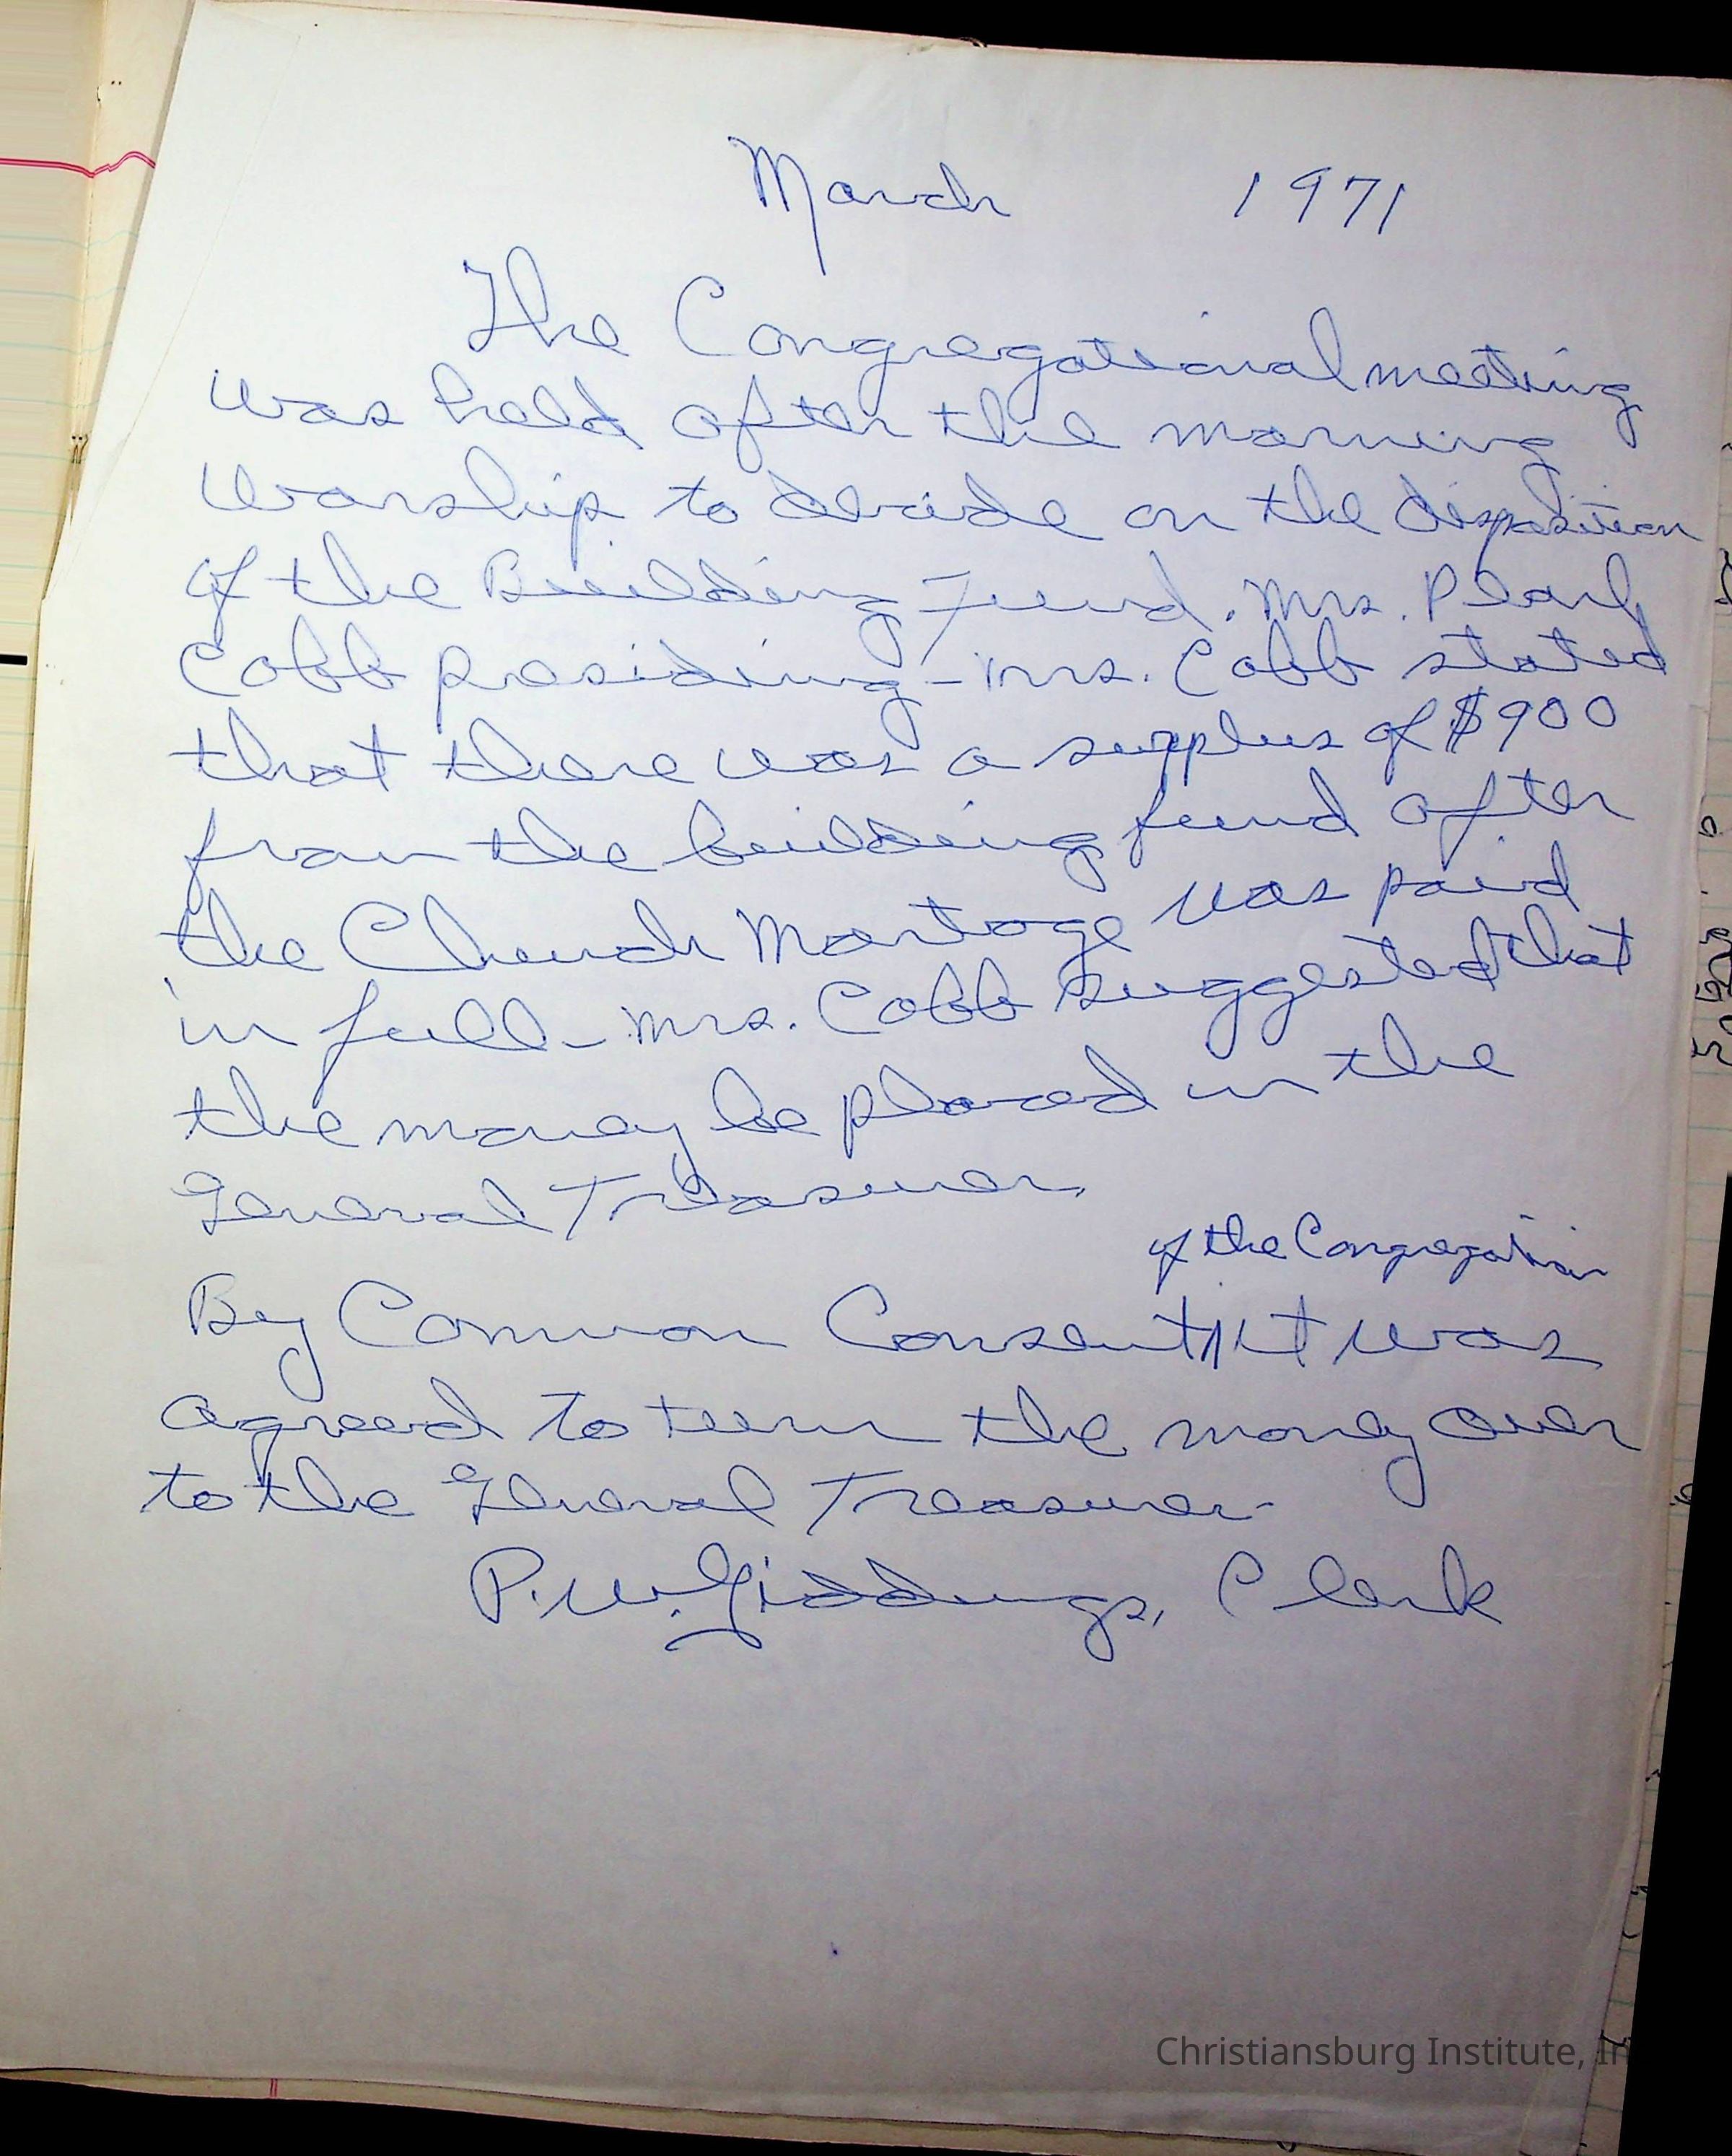 March 1971
The Congregational meeting
was held after the morning
Worship to decide on the disposition
of the Building Fund. Mrs. Pearl
Cobb presiding - Mrs. Cobb stated
that there was a surplus of $900
from the building fund after
the Church Mortage was paid
in full - Mrs. Cobb suggested that
the money be placed in the
General Treasurer.
of the Congregation
By Common Consent it was
agreed to turn the money over
to the General Treasurer-
P. W. Giddings, Clerk
Christiansburg Institute, In